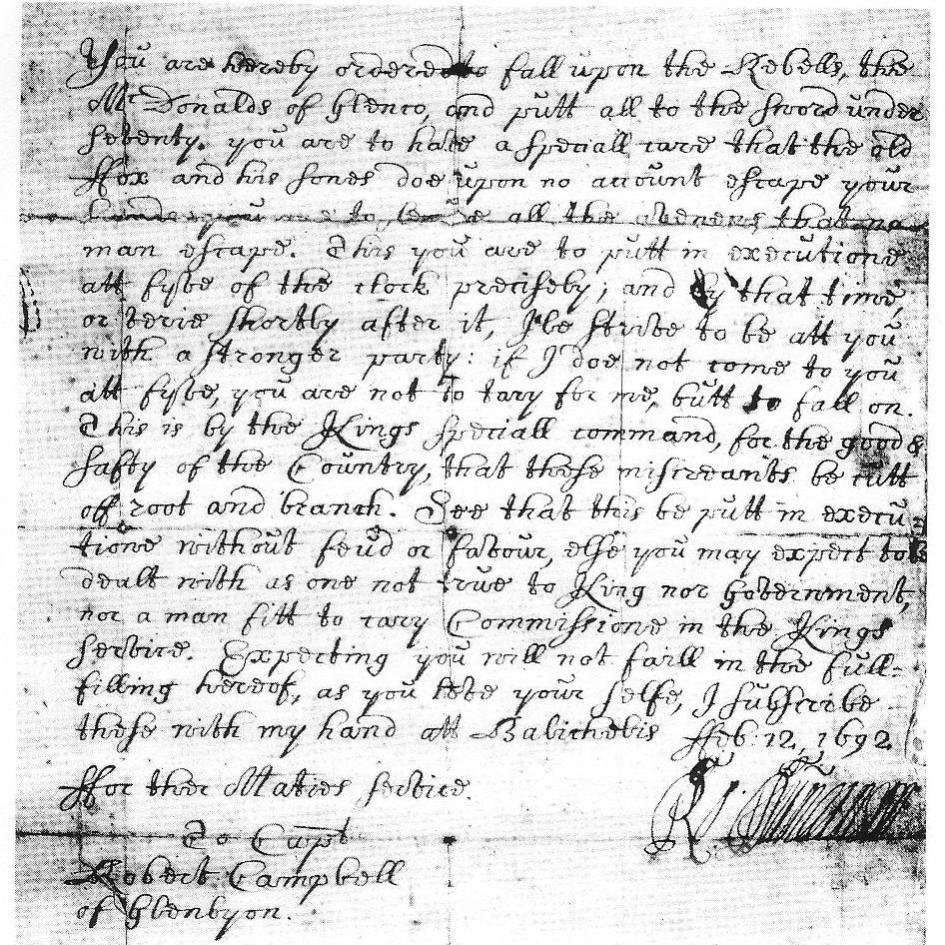 You are hereby ordered to fall upon the Rebells, the
McDonalds of Glenco, and putt all to the sword under
seventy. you are to have a speciall care that the old
ffox and his sones doe upon no account escape your
hands you are to secure all the avenues that no
man escape. This you are to putt in executione
att fyve of the clock precisely; and by that time,
or verie shortly after it, I'le strive to be att you
with a stronger party: if I doe not come to you
att fyve, you are not to tary for me, butt to fall on.
This is by the Kings speciall command, for the good &
safty of the Country, that these miscreants be cutt
off root and branch. See that this be putt in execu
tione without feud or favour, else you may expect to be
dealt with as one not true to King nor Government,
nor a man fitt to cary Commissione in the Kings
service. Expecting you will not faill in the full-
filling hereof, as you love your selfe, I subscribe
these with my hand att Balicholis ffeb: 12, 1692
ffor ther Maties service.
To Capt
Robert Campbell
of Glenlyon.